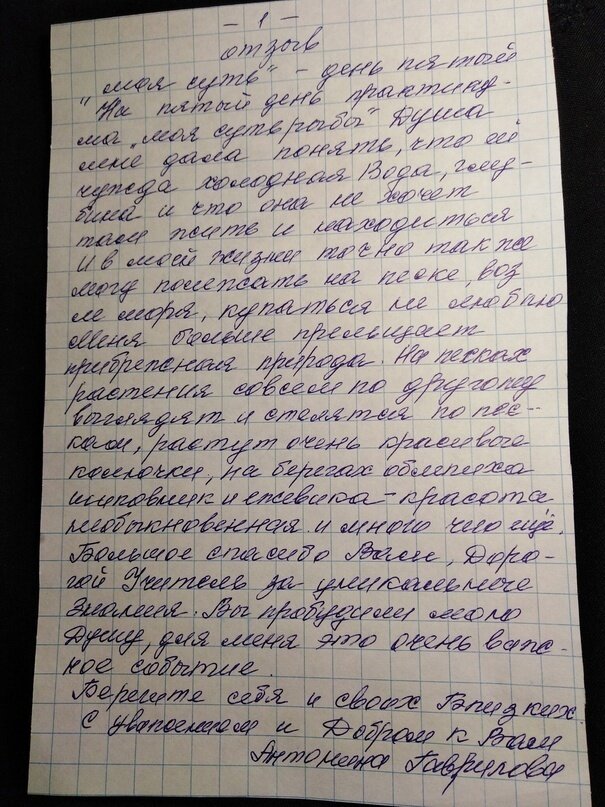 - 1 -
отзыв
"моя суть" - день пятый
На пятый день практику-
ма „моя суть рыбы" Душа
мне дала понять, что ей
чужда холодная Вода, глу-
бина и что она не хочет
там жить и находиться
И в моей жизни точно так же
могу полежать на песке, воз
ле моря, купаться не люблю
Меня больше прельщает
прибрежная природа. На песках
растения совсем по другому
выглядят и стелятся по пес-
кам, растут очень красивые
колючки, на берегах облепиха
шиповник и ежевика - красота
необыкновенная и много что ещё.
Большое спасибо Вам, Доро-
гой Учитель за уникальные
знания. Вы пробудили мою
Душу, для меня это очень важ-
ное событие
Берегите себя и своих Близких.
С уважением и Добром к Вам
Антонина Гаврилова